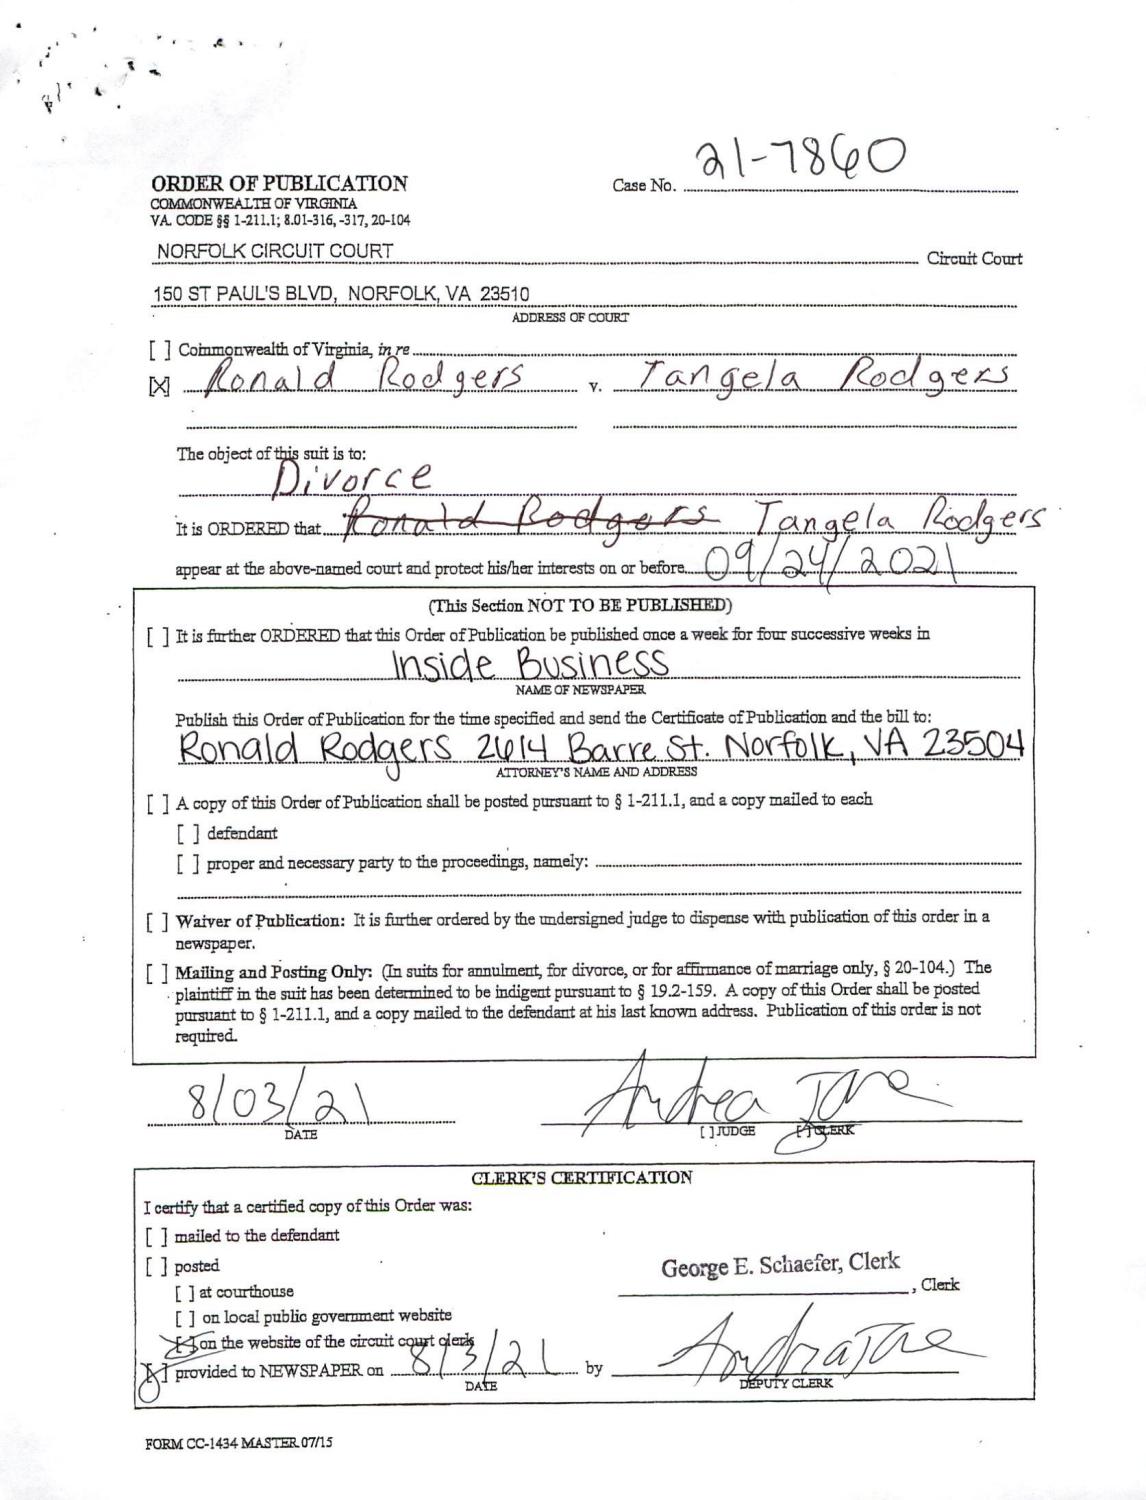 21-7860
ORDER OF PUBLICATION
Case No.
COMMONWEALTH OF VIRGINIA
VA. CODE §§ 1-211.1; 8.01-316, -317, 20-104
NORFOLK CIRCUIT COURT Circuit Court
150 ST PAUL'S BLVD, NORFOLK, VA 23510
ADDRESS OF COURT
[ ] Commonwealth of Virginia, in re
[X] Ronald Rodgers v. Tangela Rodgers
The object of this suit is to:
Divorce
It is ORDERED that Ronald Rodgers Tangela Rodgers
appear at the above-named court and protect his/her interests on or before 09/24/2021
(This Section NOT TO BE PUBLISHED)
[ ] It is further ORDERED that this Order of Publication be published once a week for four successive weeks in
Inside Business
NAME OF NEWSPAPER
Publish this Order of Publication for the time specified and send the Certificate of Publication and the bill to:
Ronald Rodgers 2614 Barre St. Norfolk, VA 23504
ATTORNEY'S NAME AND ADDRESS
[ ] A copy of this Order of Publication shall be posted pursuant to § 1-211.1, and a copy mailed to each
[ ] defendant
[ ] proper and necessary party to the proceedings, namely:
[ ] Waiver of Publication: It is further ordered by the undersigned judge to dispense with publication of this order in a
newspaper.
[ ] Mailing and Posting Only: (In suits for annulment, for divorce, or for affirmance of marriage only, § 20-104.) The
plaintiff in the suit has been determined to be indigent pursuant to § 19.2-159. A copy of this Order shall be posted
pursuant to § 1-211.1, and a copy mailed to the defendant at his last known address. Publication of this order is not
required.
8/03/21 Andrea
DATE [ ] JUDGE [ ] CLERK
CLERK'S CERTIFICATION
I certify that a certified copy of this Order was:
[ ] mailed to the defendant
[ ] posted
George E. Schaefer, Clerk
[ ] at courthouse , Clerk
[ ] on local public government website
[X] on the website of the circuit court clerk
[X] provided to NEWSPAPER on 8/3/21 by
DATE DEPUTY CLERK
FORM CC-1434 MASTER 07/15